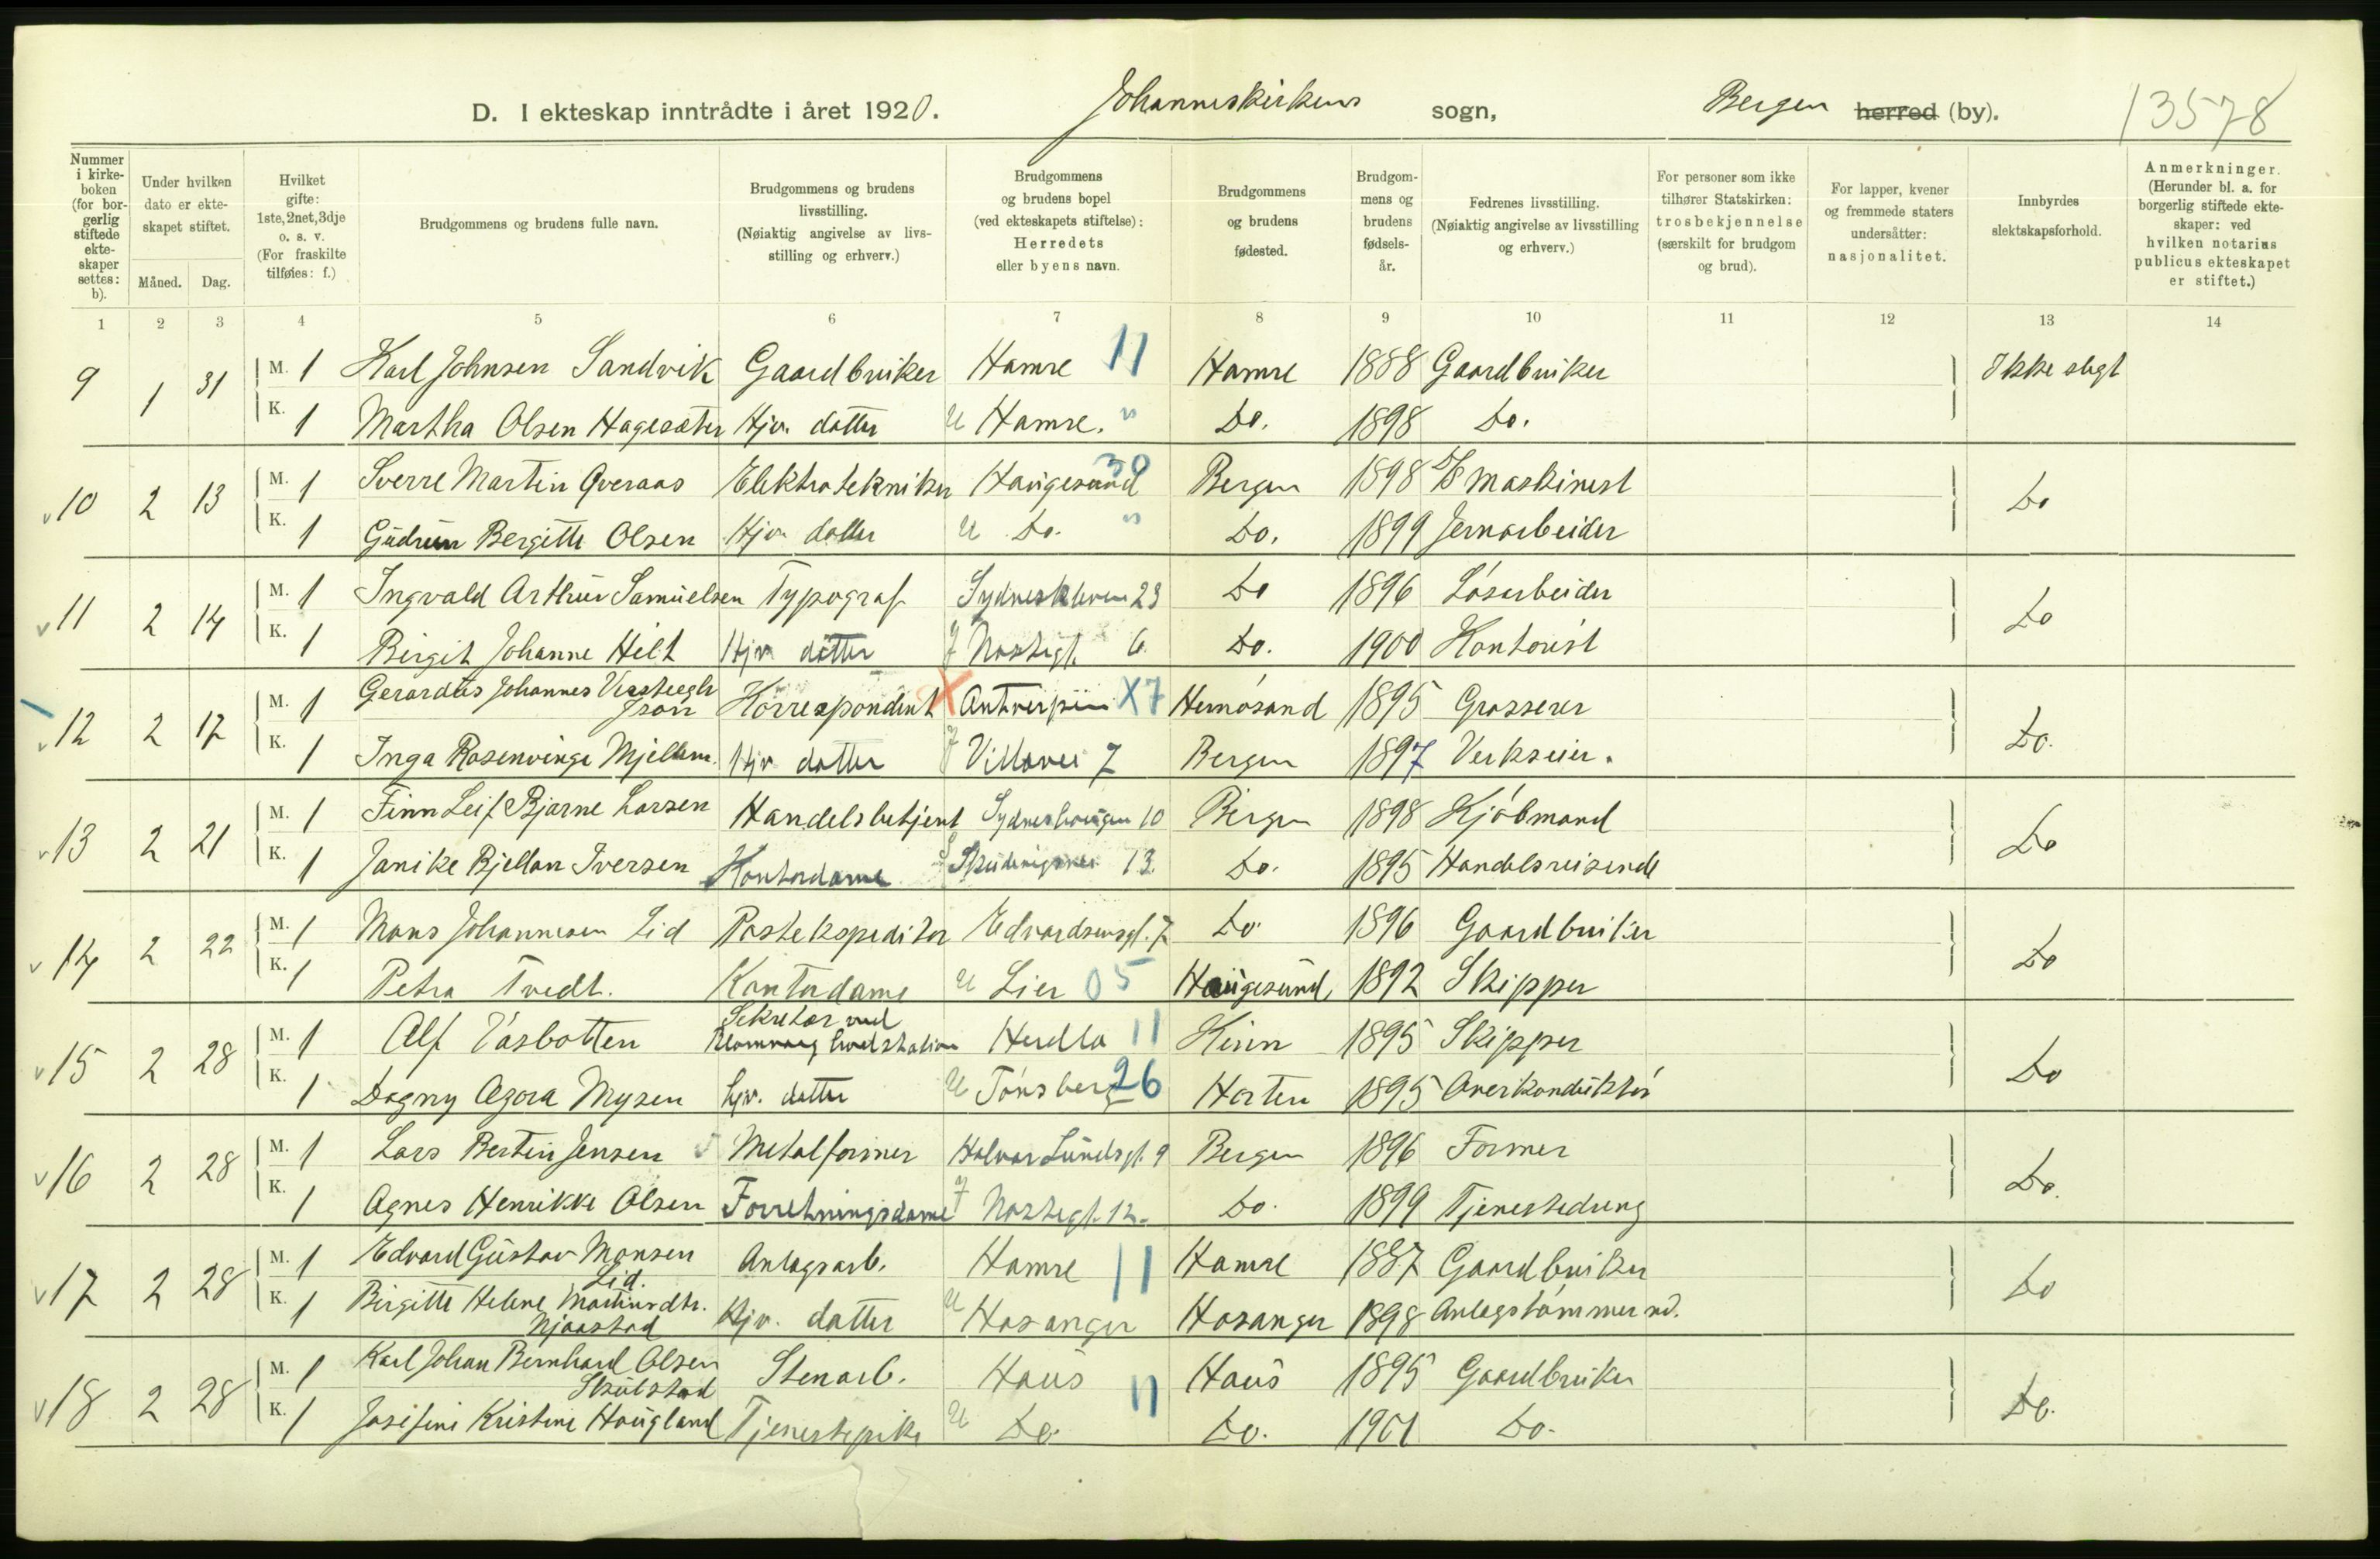 D. I ekteskap inntrådte i året 1920. Johanneskirkens sogn, Bergen herred (by). 13578
Nummer i kirkeboken (for borgerlig stiftede ekteskaper settes: b).
Under hvilken dato er ekteskapet stiftet.
Måned. Dag.
Hvilket gifte: 1ste, 2net, 3dje o. s. v. (For fraskilte tilføies: f.)
Brudgommens og brudens fulle navn.
Brudgommens og brudens livsstilling. (Nøiaktig angivelse av livsstilling og erhverv.)
Brudgommens og brudens bopel (ved ekteskapets stiftelse): Herredets eller byens navn.
Brudgommens og brudens fødested.
Brudgommens og brudens fødselsår.
Fedrenes livsstilling. (Nøiaktig angivelse av livsstilling og erhverv.)
For personer som ikke tilhører Statskirken: trosbekjennelse (særskilt for brudgom og brud).
For lapper, kvener og fremmede staters undersåtter: nasjonalitet.
Innbyrdes slektskapsforhold.
Anmerkninger. (Herunder bl. a. for borgerlig stiftede ekteskaper: ved hvilken notarius publicus ekteskapet er stiftet.)
1 2 3 4 5 6 7 8 9 10 11 12 13 14
9 1 31 M. 1 Karl Johnsen Sandvik Gaardbruker Hamre 11 Hamre 1888 Gaardbruker Ikke slegt
K. 1 Martha Olsen Hagesæter Hjv. datter U Hamre. " Do. 1898 Do.
v 10 2 13 M. 1 Sverre Martin Øveraas Elektrotekniker Haugesund 30 Bergen 1898 D/S Maskinist Do
K. 1 Gudrun Bergitte Olsen Hjv. datter U Do. " Do. 1899 Jernarbeider
v 11 2 14 M. 1 Ingvald Arthur Samuelsen Typograf Sydneskleven 23 Do 1896 Løsarbeider Do
K. 1 Birgit Johanne Hilt Hjv. datter J Nostegt. 6. Do. 1900 Kontorist
v 12 2 17 M. 1 Gerardus Johannes Versteegh
Json Korrespondent X Antverpen X7 Hernøsand 1895 Grosserer Do.
K. 1 Inga Rosenvinge Mjellem. Hjv. datter J Villavei 7 Bergen 1897 Verkseier.
v 13 2 21 M. 1 Finn Leif Bjarne Larsen Handelsbetjent 10 Bergen 1898 Kjøbmand Do
K. 1 Janike Bjellan Iversen Kontordame 13. Do. 1895 Handelsreisende
v 14 2 22 M. 1 Mons Johannesen Lid Postekspeditør Edvardsensgt. 7 Do. 1896 Gaardbruker Do
K. 1 Petra Tvedt. Kontordame U Lier 05 Haugesund, 1892 Skipper
v 15 2 28 M. 1 Alf Vasbotten Sekretær ved
Herdla 11 Kinn 1895 Skipper Do
K. 1 Dagny Agora Mysen hjv. datter U Tønsberg 26 Horten 1895 Overkonduktør
v 16 2 28 M. 1 Lars Bertin Jensen Metalformer Halvor Lundsgt. 9 Bergen 1896 Former Do.
K. 1 Agnes Henrikke Olsen Forretningsdame J Nostegt. 12. Do. 1899 Tjenestedreng
v 17 2 28 M. 1 Edvard Gustav Monsen
Lid. Anlagsarb. Hamre 11 Hamre 1887 Gaardbruker Do
K. 1 Birgitte Helene Martinsdtr.
Njaastad Hjv. datter U Hosanger Hosanger 1898 Anlagstømmerm.
v 18 2 28 M. 1 Karl Johan Bernhard Olsen
Skulstad Stenarb. Haus 11 Haus 1895 Gaardbruker Do.
K. 1 Josefine Kristine Hougland Tjenestepike U Do. Do. 1901 Do.